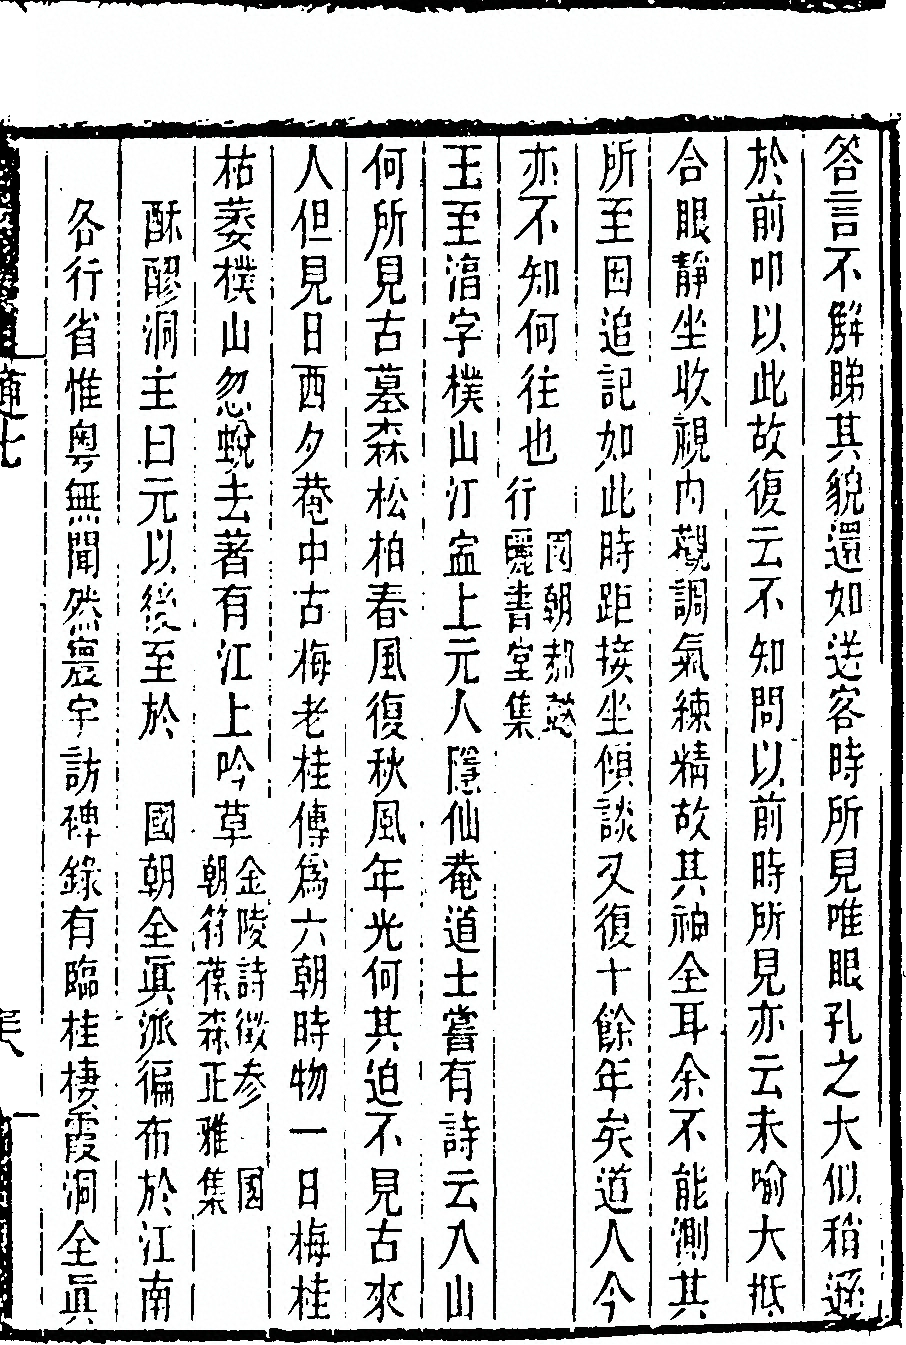 答言不解睇其貌還如送客時所見唯眼孔之大似稍遜
於前叩以此故復云不知問以前時所見亦云未喻大抵
合眼靜坐收視內觀調氣練精故其神全耳余不能測其
所至因追記如此時距接坐傾談又復十餘年矣道人今
亦不知何往也
國朝郝懿
行曬書堂集
王至淐字樸山江寍上元人隱仙菴道士嘗有詩云入山
何所見古墓森松柏春風復秋風年光何其迫不見古來
人但見日西夕菴中古梅老桂傳爲六朝時物一日梅桂
枯萎樸山忽蛻去著有江上吟草
金陵詩徵參 國
朝符葆森正雅集
酥醪洞主曰元以後至於 國朝全眞派徧布於江南
各行省惟粵無聞然寰宇訪碑錄有臨桂棲霞洞全眞
七